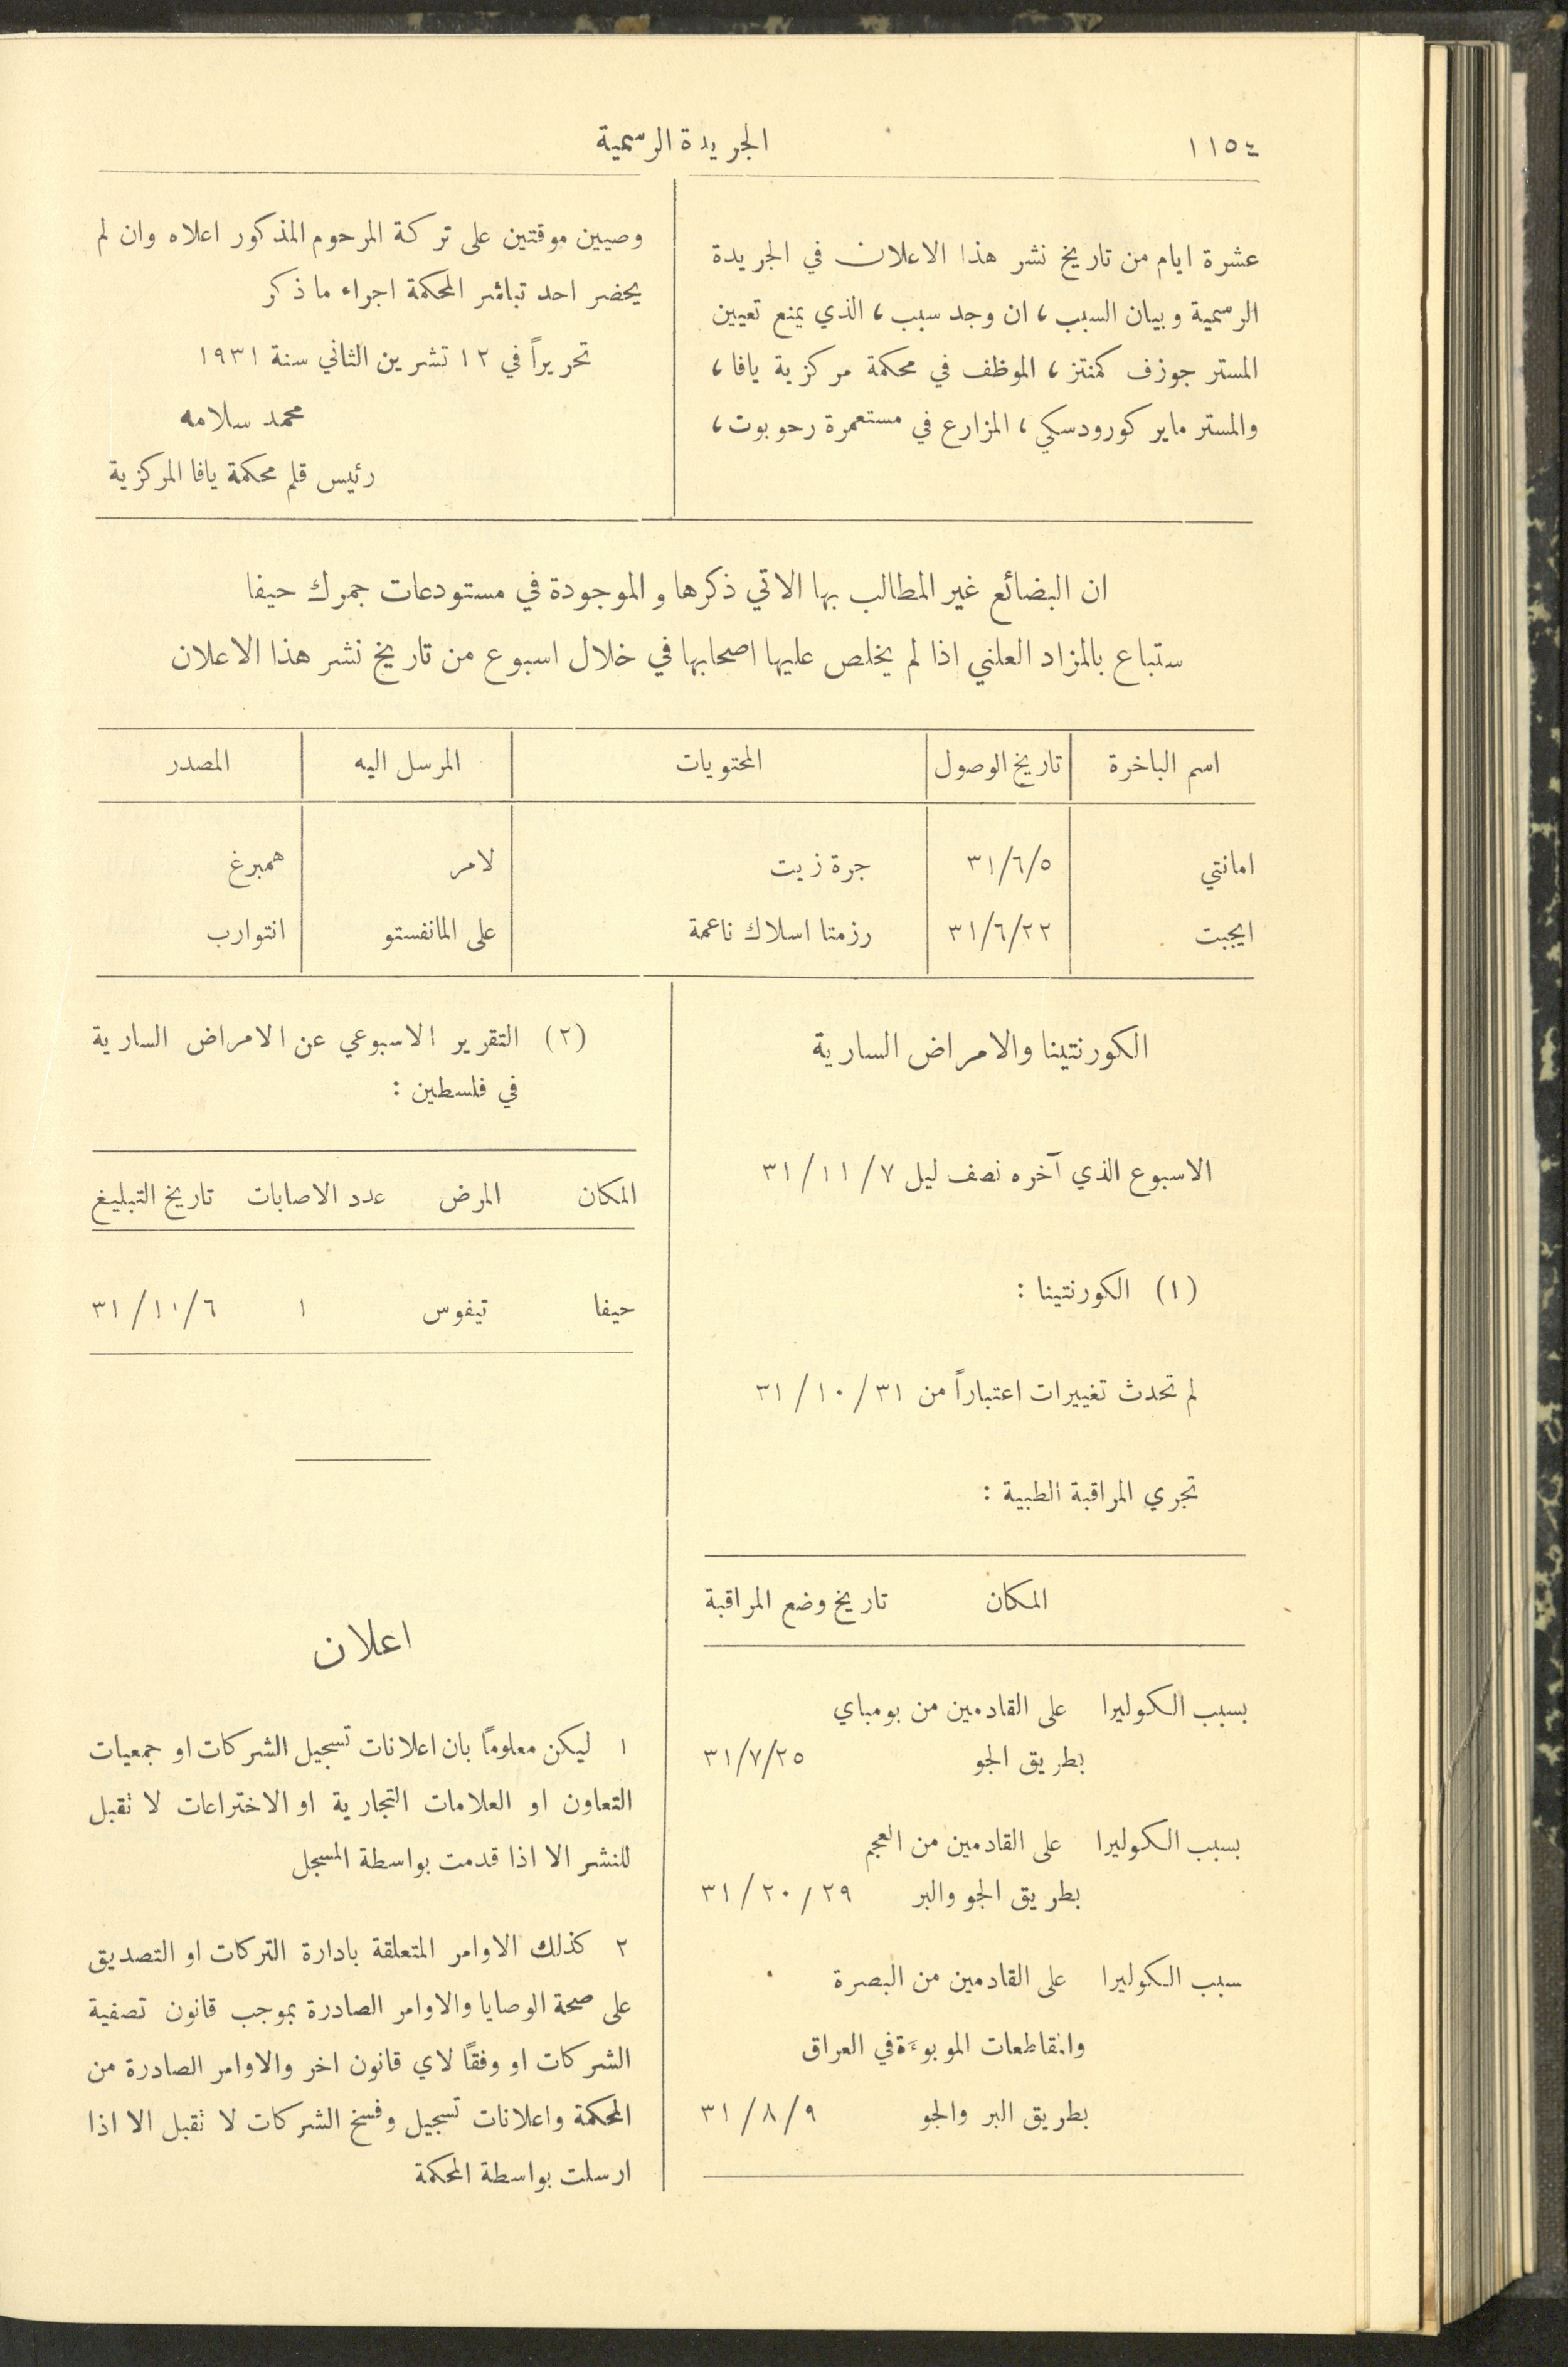 ١١٥٤
الجريدة الرسمية
عشرة ايام من تاريخ نشر هذا الاعلان في الجريدة
الرسمية وبيان السبب، ان وجد سبب، الذي يمنع تعيين
المستر جوزف كمنتز، الموظف في محكمة مركزية يافا،
والمستر ماير كورودسكي، المزارع في مستعمرة رحوبوت،
وصيين موقتين على تركة المرحوم المذكور اعلاه وان لم
يحضر احد تباشر المحكمة اجراء ما ذكر
تحريراً في ١٢ تشرين الثاني سنة ١٩٣١
محمد سلامه
رئيس قلم محكمة يافا المركزية
ان البضائع غير المطالب بها الاتي ذكرها والموجودة في مستودعات جمرك حيفا
ستباع بالمزاد العلني اذا لم يخلص عليها اصحابها في خلال اسبوع من تاريخ نشر هذا الاعلان
اسم الباخرة تاريخ الوصول المحتويات المرسل اليه المصدر
امانتي ٣١/٦/٥ جرة زيت لامر همبرغ
ايجبت ٣١/٦/٢٢ رزمتا اسلاك ناعمة على المانفستو انتوارب
الكورنتينا والامراض السارية
الاسبوع الذي آخره نصف ليل ٣١/١١/٧
(١) الكورنتينا :
لم تحدث تغييرات اعتباراً من ٣١/١٠/٣١
تجري المراقبة الطبية :
المكان تاريخ وضع المراقبة
بسبب الكوليرا على القادمين من بومباي
بطريق الجو ٣١/٧/٢٥
بسبب الكوليرا على القادمين من العجم
بطريق الجو والبر ٣١/٢٠/٢٩
سبب الكوليرا على القادمين من البصرة
والمقاطعات الموبوءة في العراق
بطريق البر والجو ٣١/٨/٩
(٢) التقرير الاسبوعي عن الامراض السارية
في فلسطين :
المكان المرض عدد الاصابات تاريخ التبليغ
حيفا تيفوس ١ ٣١/١٠/٦
اعلان
١ ليكن معلوماً بان اعلانات تسجيل الشركات او جمعيات
التعاون او العلامات التجارية او الاختراعات لا تقبل
للنشر الا اذا قدمت بواسطة المسجل
٢ كذلك الاوامر المتعلقة بادارة التركات او التصديق
على صحة الوصايا والاوامر الصادرة بموجب قانون تصفية
الشركات او وفقاً لاي قانون اخر والاوامر الصادرة من
المحكمة واعلانات تسجيل وفسخ الشركات لا تقبل الا اذا
ارسلت بواسطة المحكمة